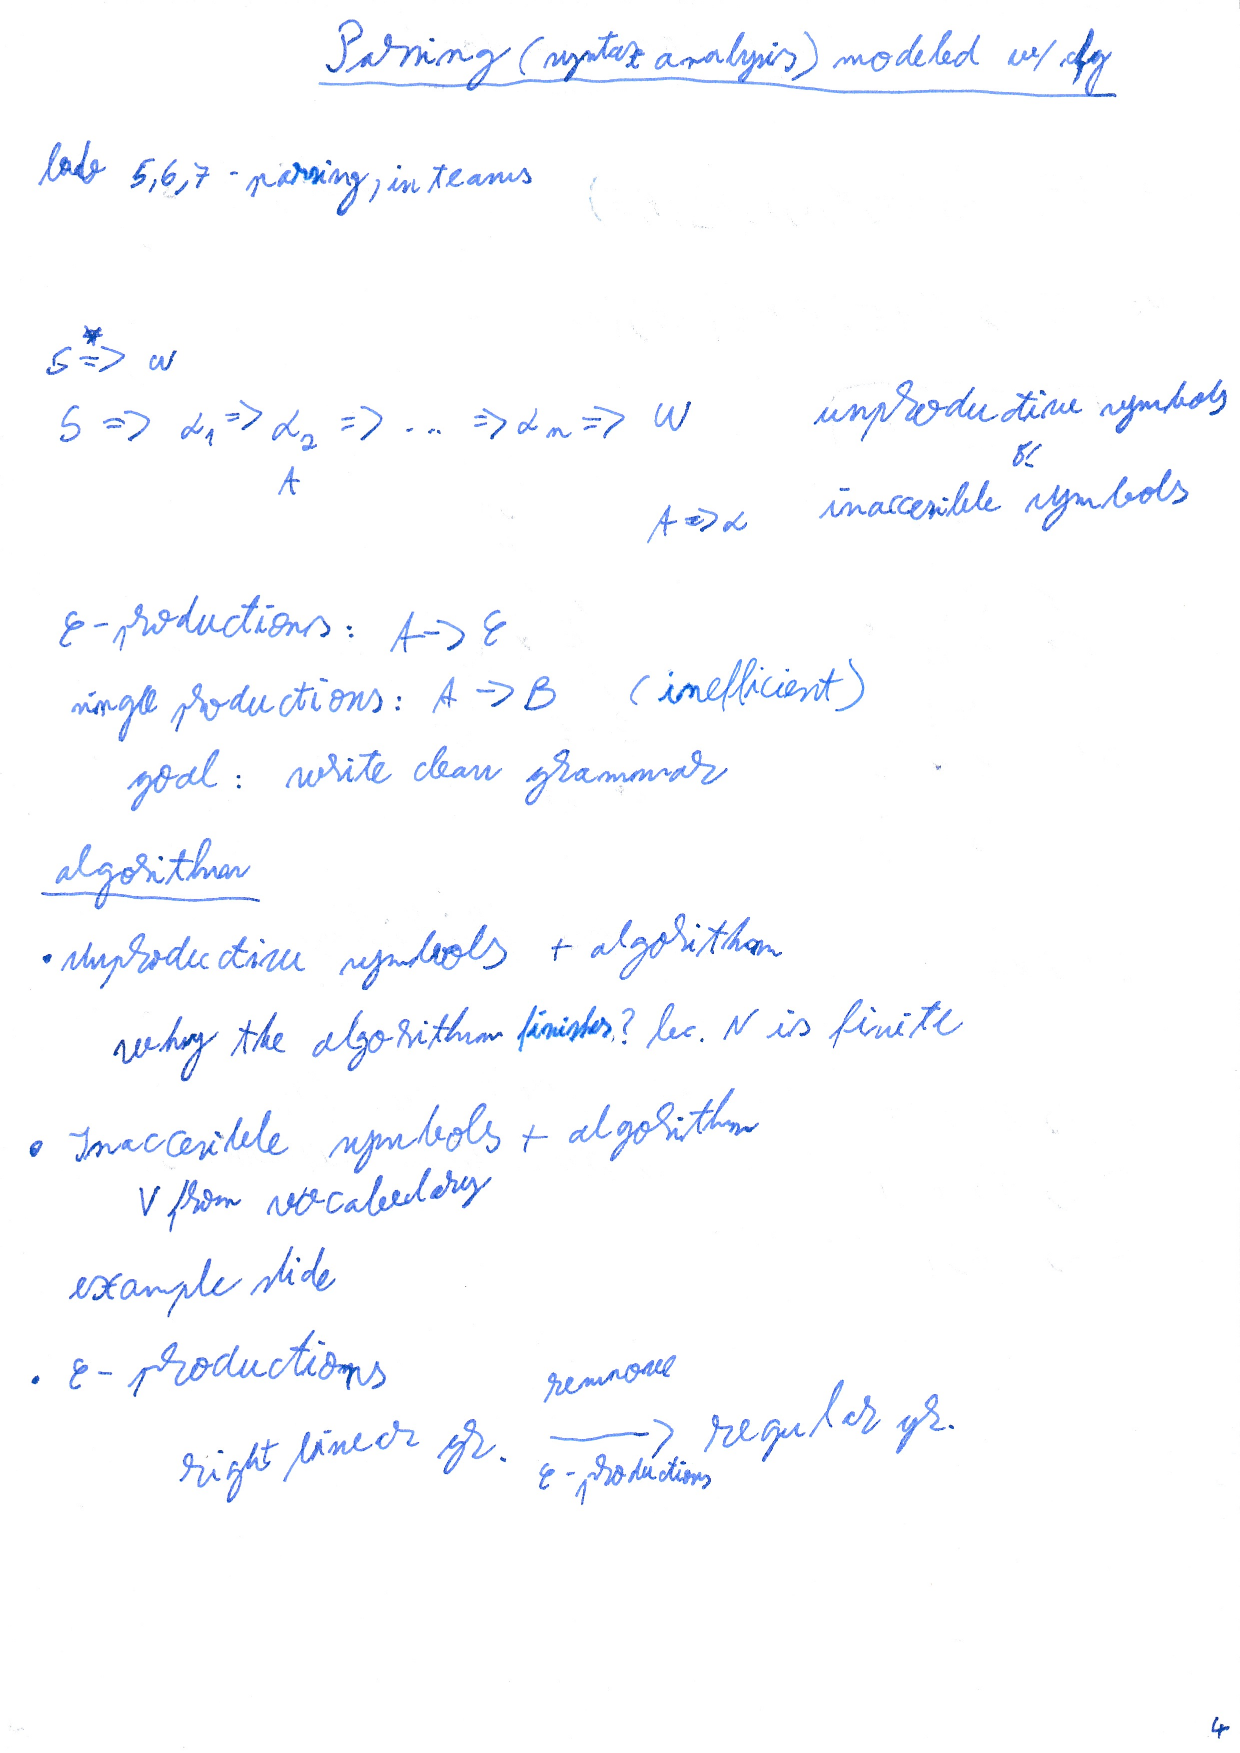 Parsing (syntax analysis) modeled w/ cfg
labs 5,6,7 - parsing, in teams
S *=> w
S => α1 => α2 => ... => αn => w
A
A => α
unproductive symbols
&
inaccesible symbols
ε-productions: A -> ε
single productions: A -> B (inefficient)
goal: write clean grammar
algorithm
• Unproductive symbols + algorithm
why the algorithm finishes? bec. N is finite
• Inaccesible symbols + algorithm
V from vocabulary
example slide
• ε-productions
right linear gr. remove -> ε-productions regular gr.
4